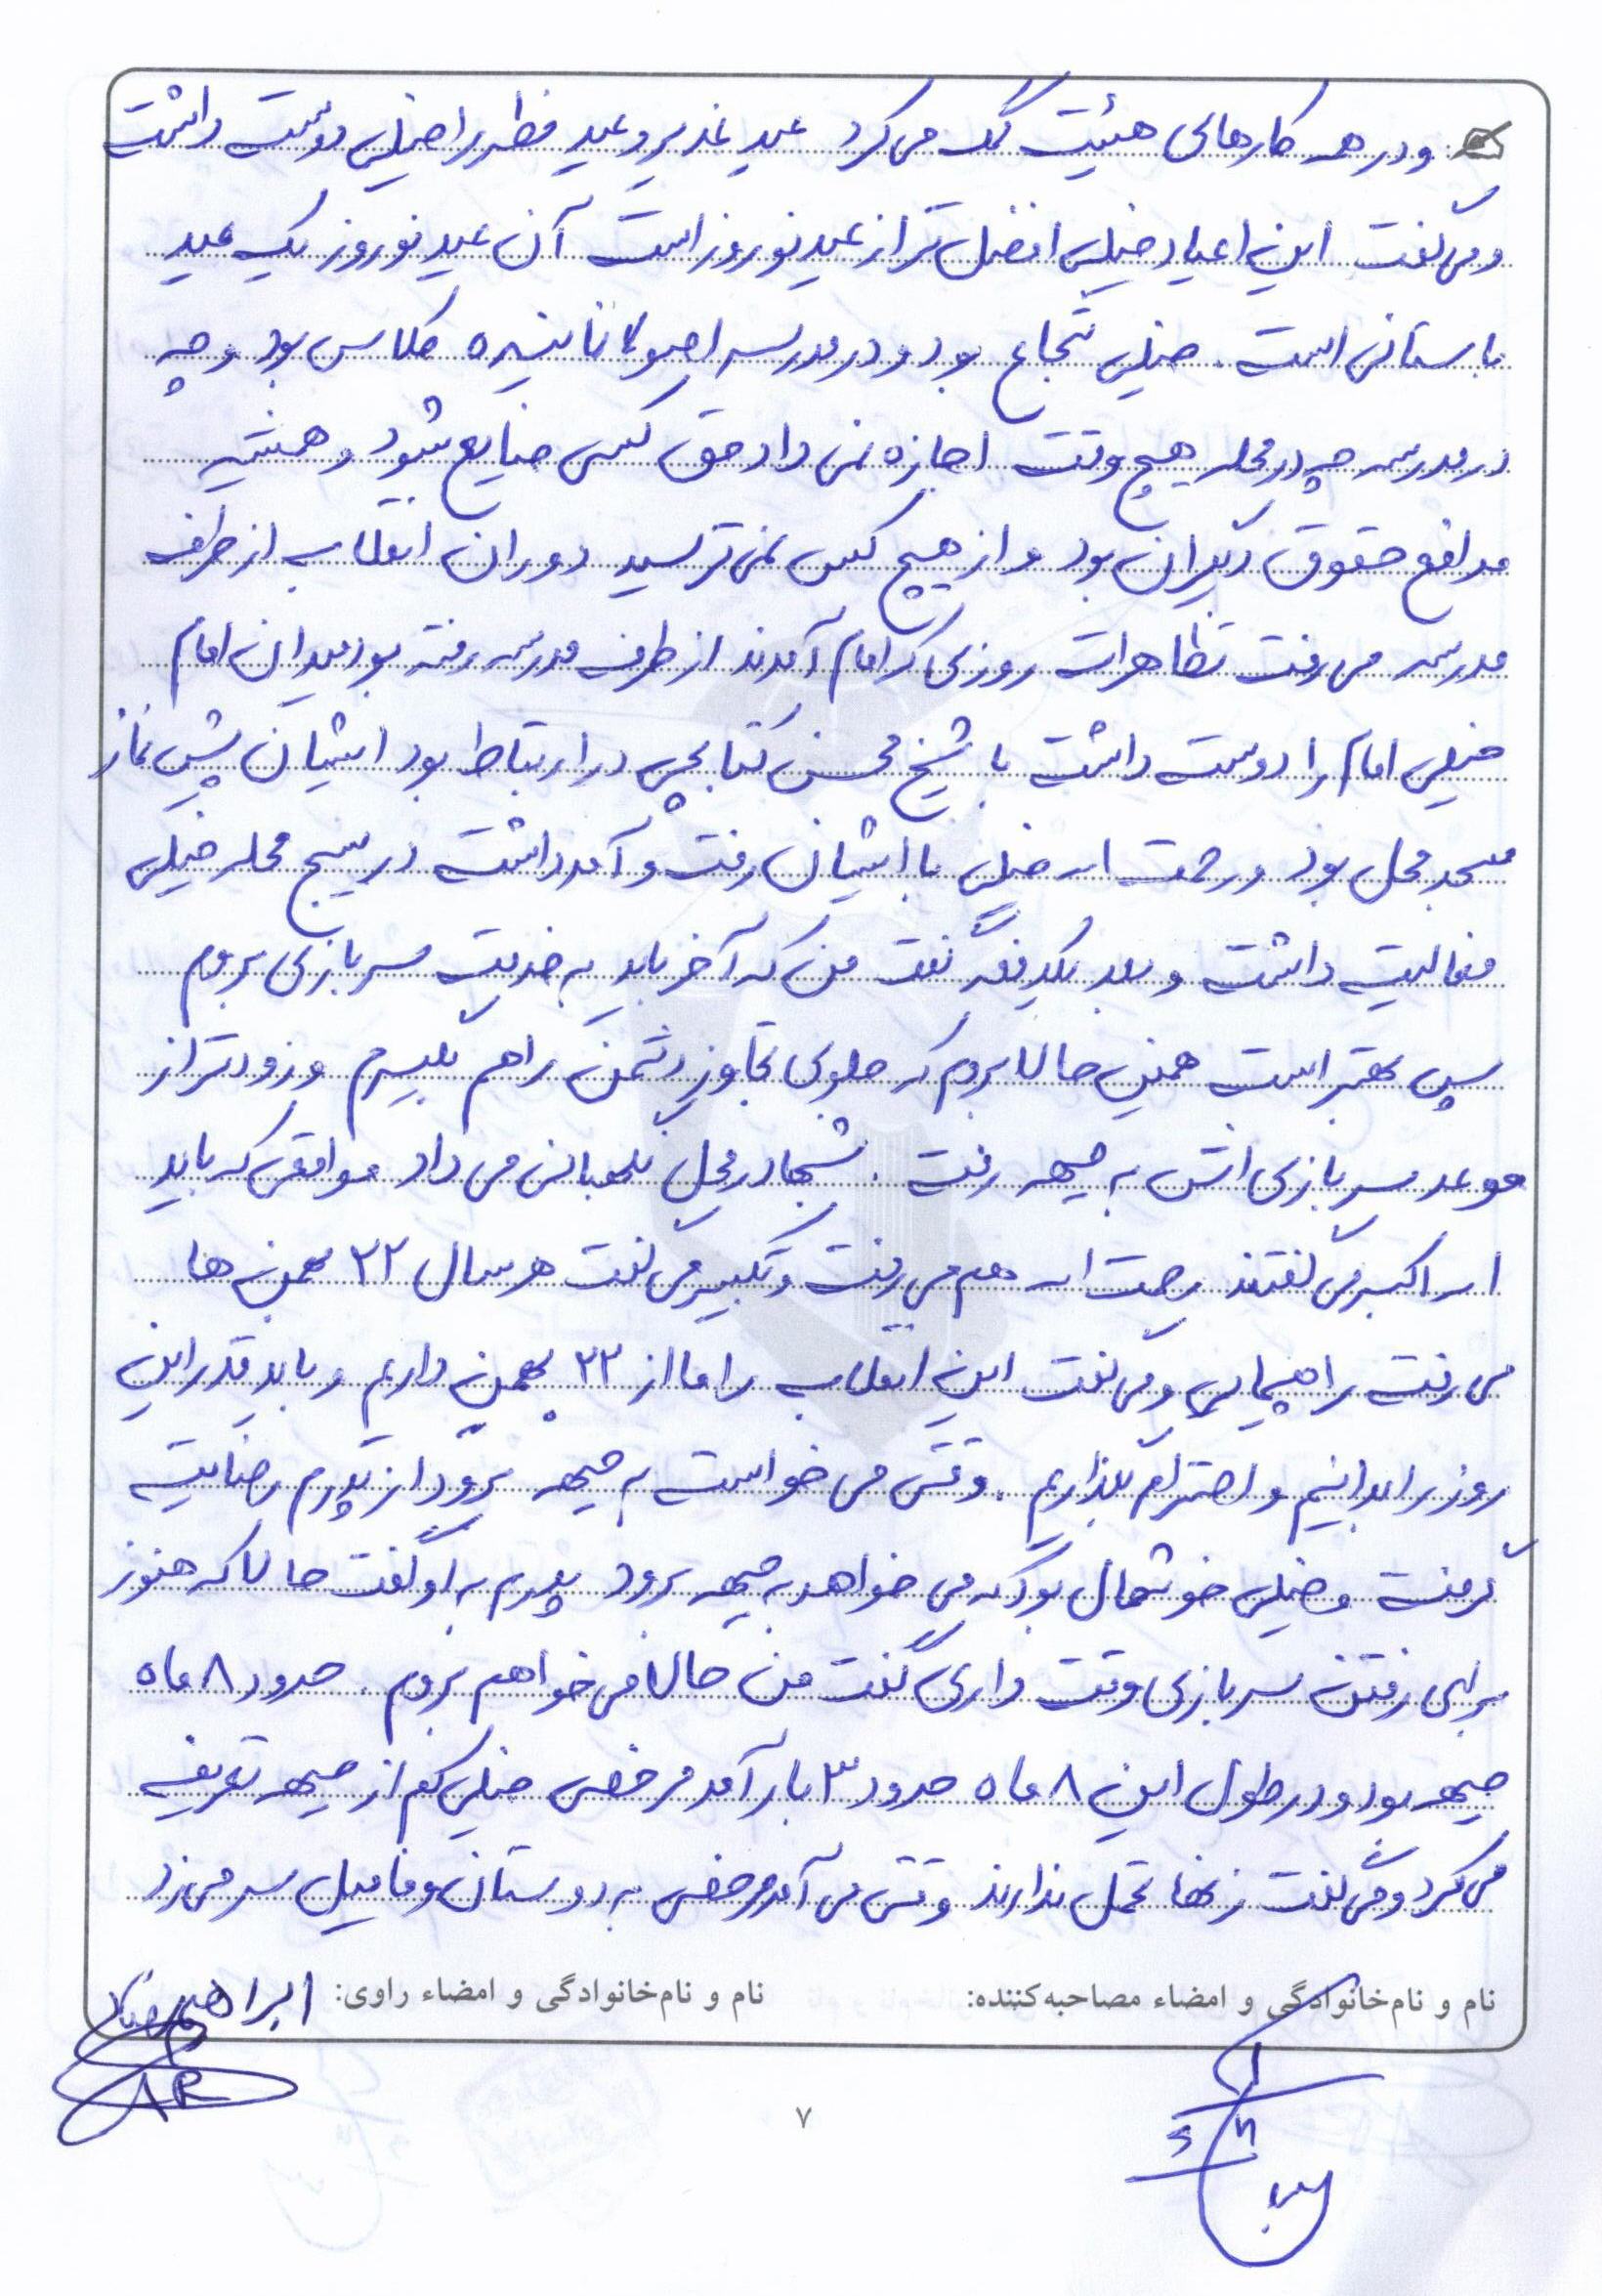 و در همه کارهای هیئت کمک می کرد عید غدیر و عید فطر را خیلی دوست داشت
و می گفت این اعیاد خیلی افضل تر از عید نوروز است آن عید نوروز یک عید
باستانی است. خیلی شجاع بود و در مدرسه اصولا نماینده کلاس بود و چه
در مدرسه چه در محله هیچ وقت اجازه نمی داد حق کسی ضایع شود و همیشه
مدافع حقوق دیگران بود و از هیچ کس نمی ترسید دوران انقلاب از طرف
مدرسه می رفت تظاهرات روزی که امام آمدند از طرف مدرسه رفته بود میدان امام
خیلی امام را دوست داشت با شیخ محسن کتابچی در ارتباط بود ایشان پیش نماز
مسجد محل بود و رحمت اله خیلی با ایشان رفت و آمد داشت در بسیج محله خیلی
فعالیت داشت و بعد یکدفعه گفت من که آخر باید به خدمت سربازی بروم
پس بهتر است همین حالا بروم که جلوی تجاوز دشمن را هم بگیرم و زودتر از
موعد سربازی اش به جبهه رفت. شبها در محل نگهبانی می داد مواقعی که باید
اله اکبر می گفتند رحمت اله هم می رفت و تکبیر می گفت هر سال ۲۲ بهمن ها
می رفت راهپیمایی و می گفت این انقلاب را ما از ۲۲ بهمن داریم و باید قدر این
روز را بدانیم و احترام بگذاریم. وقتی می خواست به جبهه برود از پدرم رضایت
گرفت و خیلی خوشحال بود که می خواهد به جبهه برود پدرم به او گفت حالا که هنوز
برای رفتن سربازی وقت داری گفت من حالا می خواهم بروم. حدود ۸ ماه
جبهه بود و در طول این ۸ ماه حدود ۳ بار آمد مرخصی خیلی کم از جبهه تعریف
می کرد و می گفت زنها تحمل ندارند وقتی می آمد مرخصی به دوستان و فامیل سر می زد
نام و نام‌خانوادگی و امضاء مصاحبه‌کننده: نام و نام‌خانوادگی و امضاء راوی: ابراهیم
۷